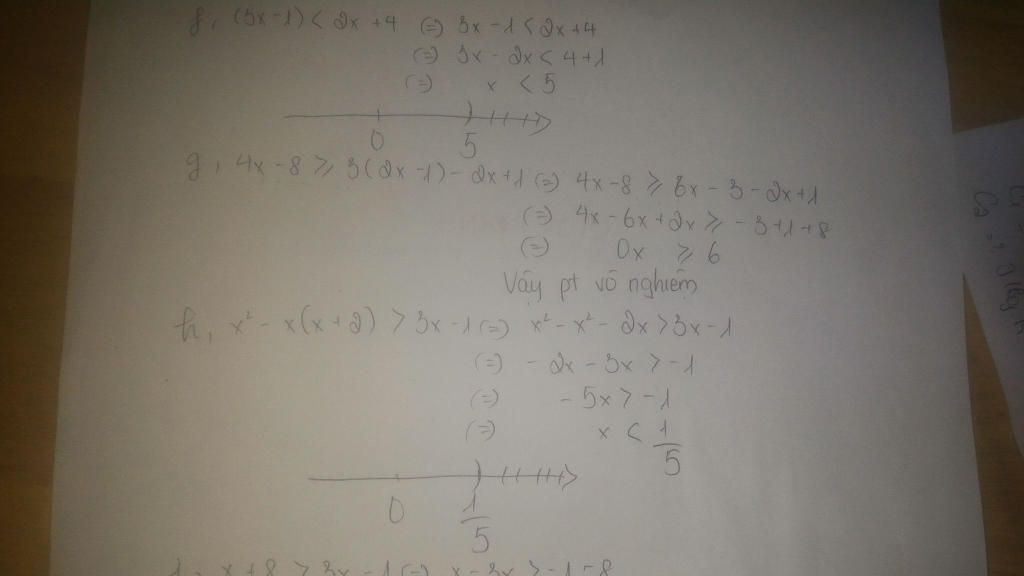 f, (3x-1) < 2x+4 (=) 3x-1 < 2x+4
(=) 3x - 2x < 4+1
(=) x < 5
0 5
g, 4x-8 ⩾ 3(2x-1) - 2x+1 (=) 4x-8 ⩾ 6x-3-2x+1
(=) 4x-6x+2x ⩾ -3+1+8
(=) 0x ⩾ 6
Vậy pt vô nghiệm
h, x² - x(x+2) > 3x-1 (=) x² - x² - 2x > 3x-1
(=) -2x-3x > -1
(=) -5x > -1
(=) x < 1/5
0 1/5
x+8 > 3x-1 (=) x-3x > -1-8